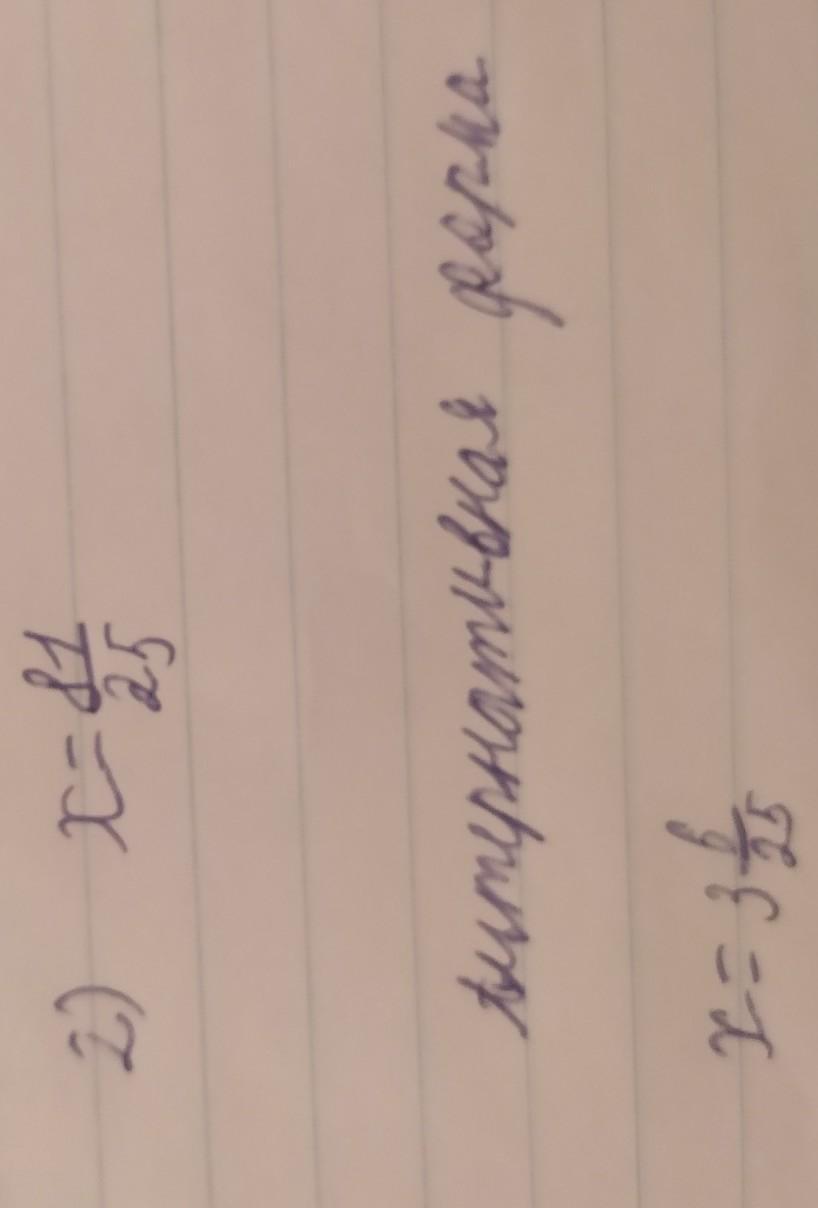 2) x = 81/25
альтернативная форма
x = 3 6/25